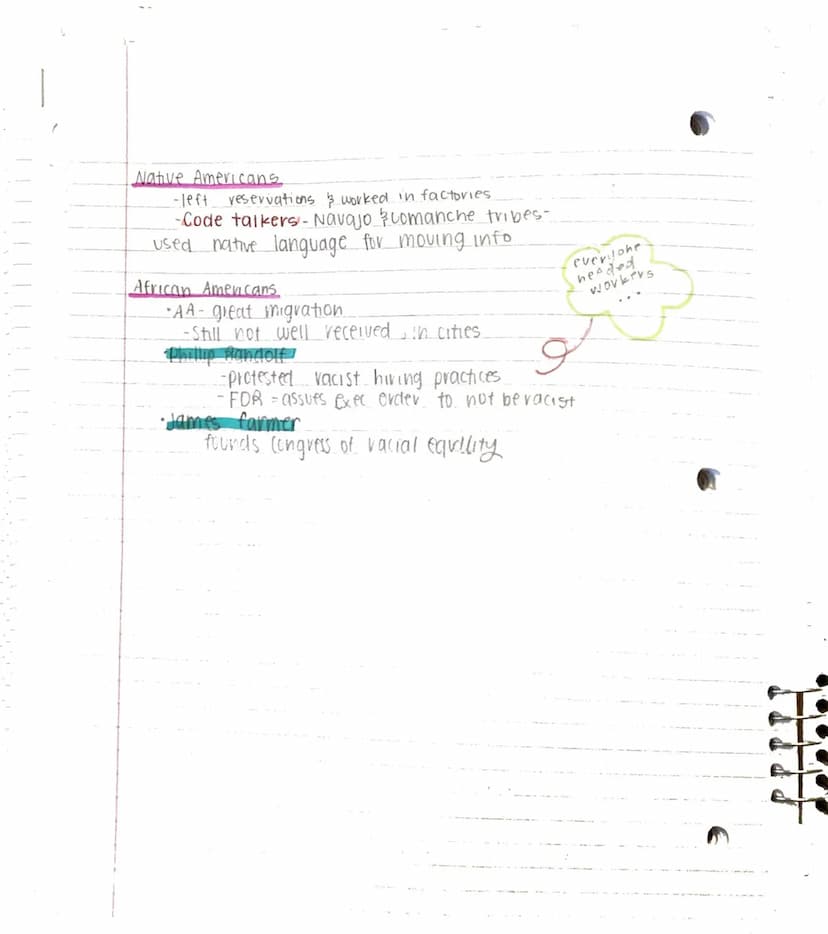 Native Americans
-left reservations & worked in factories
-Code talkers - Navajo & Comanche tribes-
used native language for moving info
everyone
needed
workers
...
African Americans
·AA- great migration
-Still not well received in cities
·Phillip Randolf
-protested racist hiring practices
-FDR = assues Exec order to not be racist
·James farmer
founds Congress of racial equility